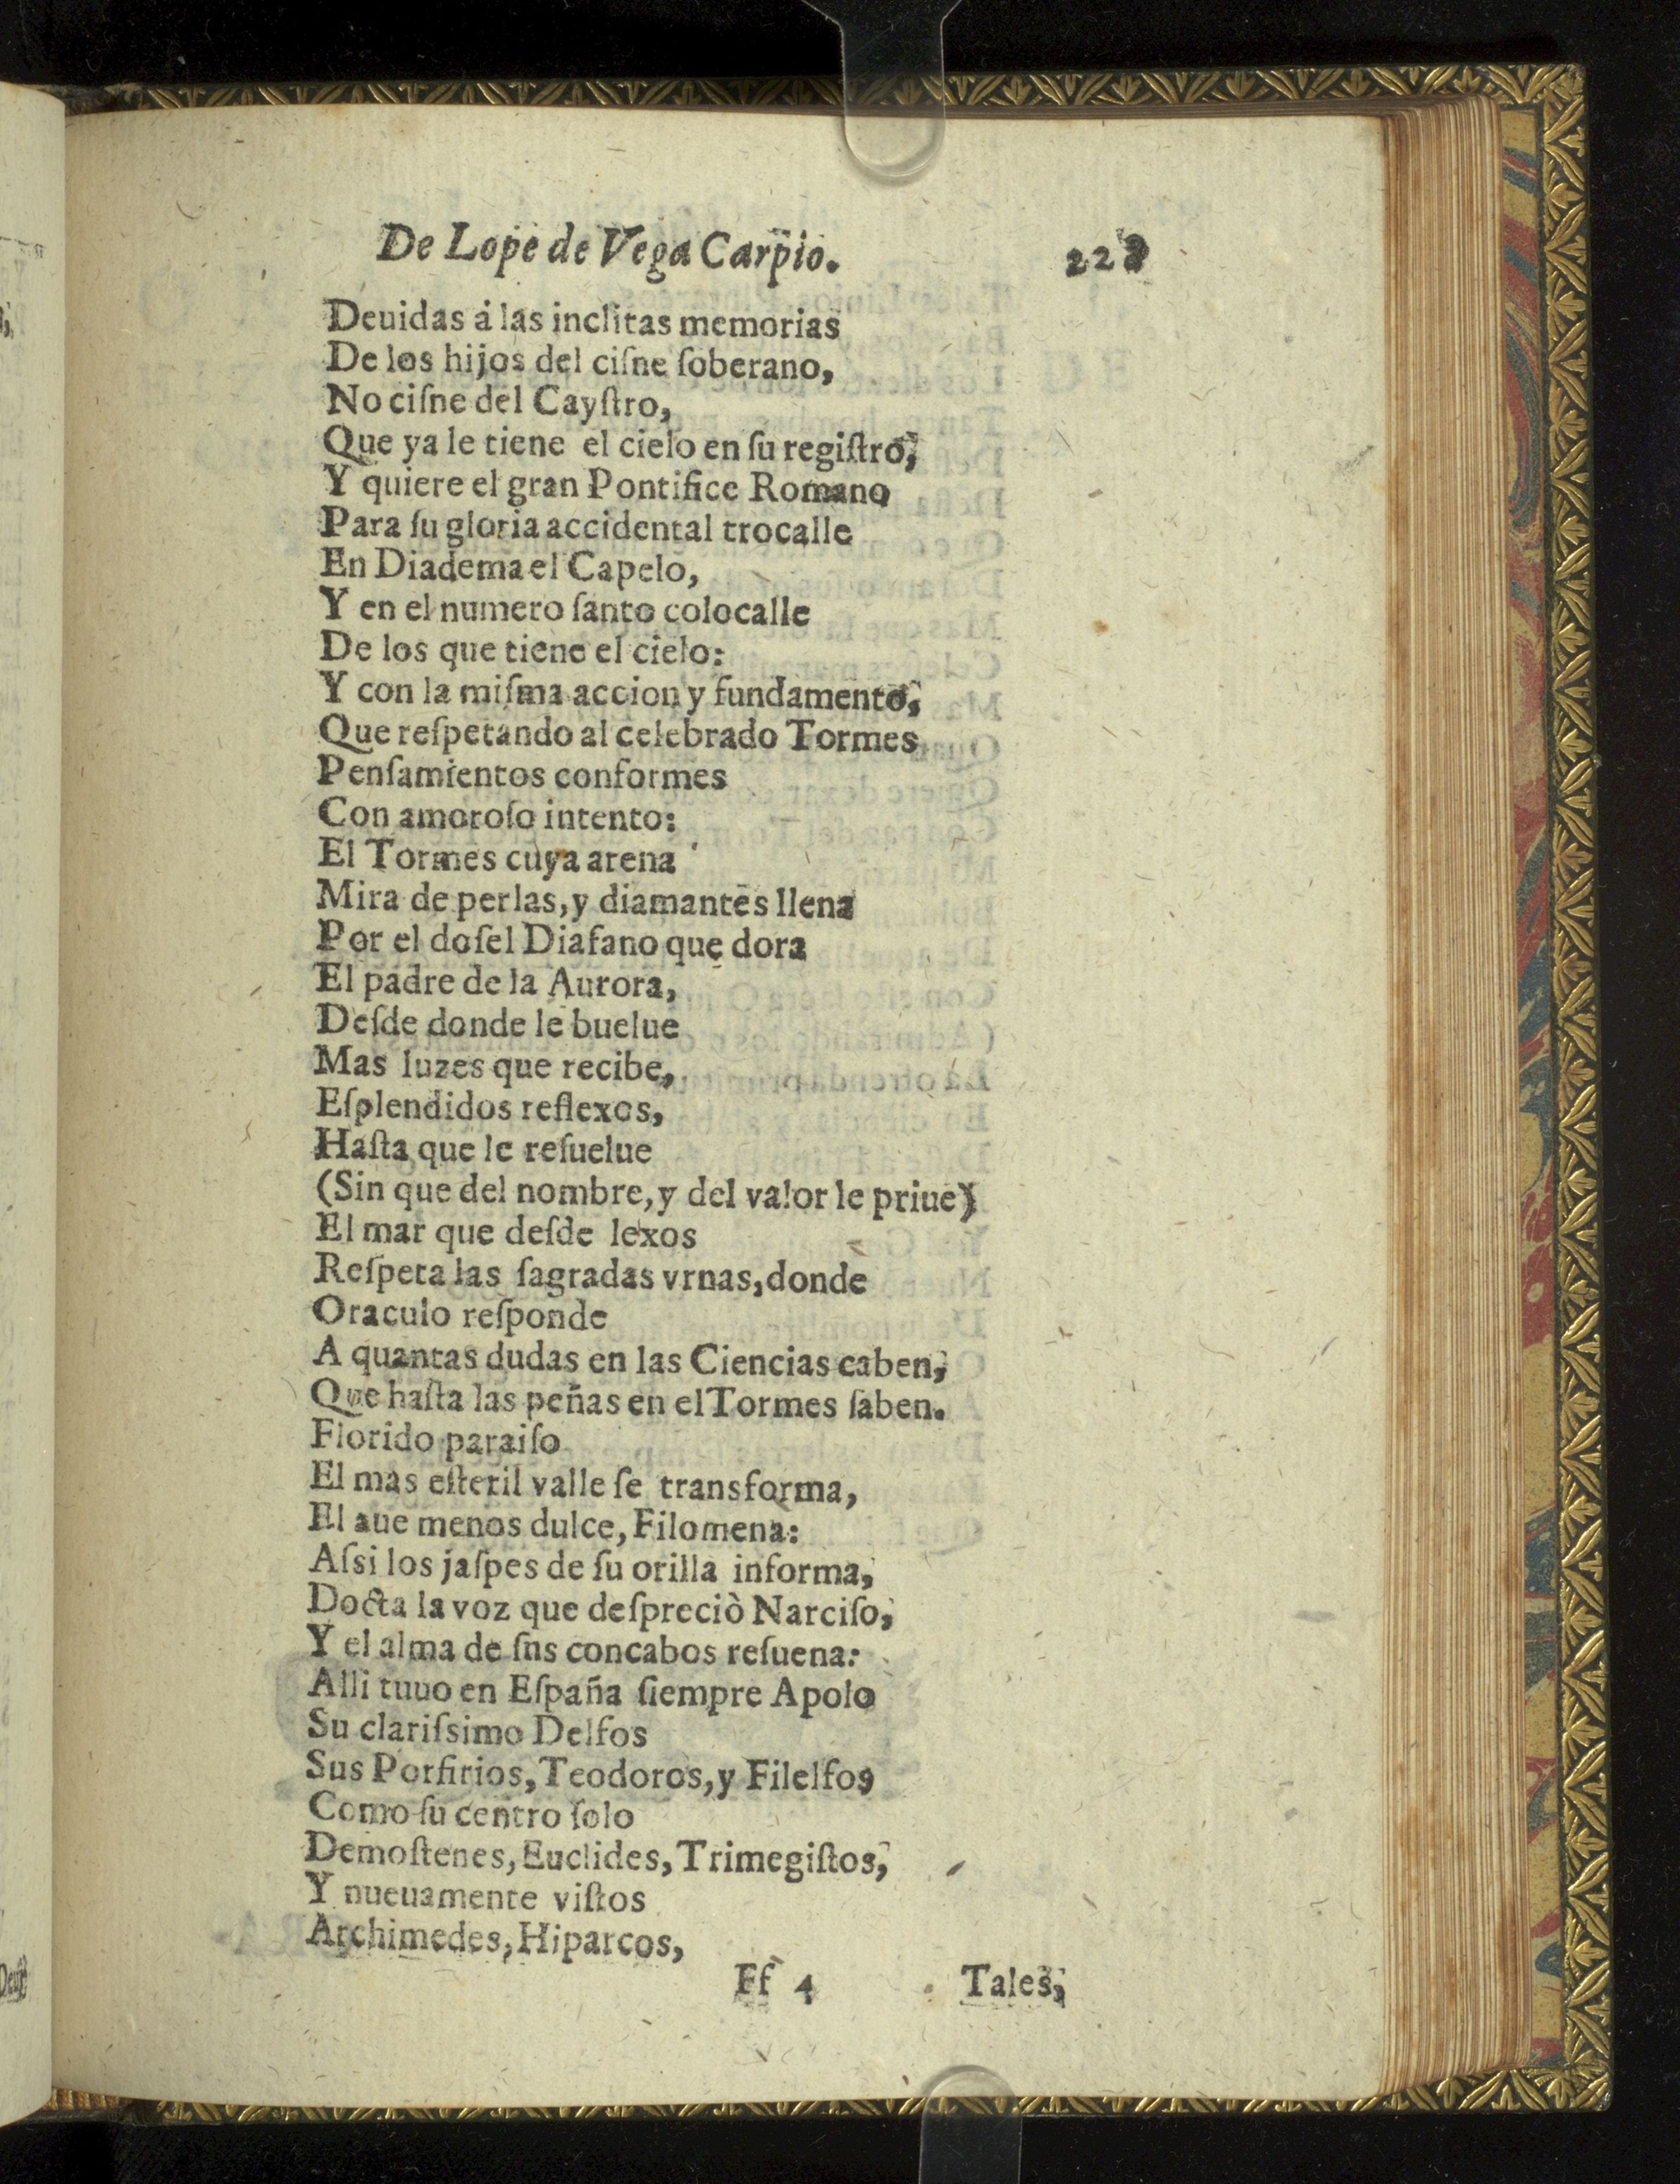 De Lope de Vega Carpio. 228
Deuidas á las inclitas memorias
De los hijos del ciſne ſoberano,
No ciſne del Cayſtro,
Que ya le tiene el cielo en ſu regiſtro,
Y quiere el gran Pontifice Romano
Para ſu gloria accidental trocalle
En Diadema el Capelo,
Y en el numero ſanto colocalle
De los que tiene el cielo:
Y con la miſma accion y fundamento,
Que reſpetando al celebrado Tormes
Penſamientos conformes
Con amoroſo intento:
El Tormes cuya arena
Mira de perlas, y diamantes llena
Por el doſel Diafano que dora
El padre de la Aurora,
Deſde donde le buelue
Mas luzes que recibe,
Eſplendidos reflexos,
Haſta que le reſuelue
(Sin que del nombre, y del valor le priue)
El mar que deſde lexos
Reſpeta las ſagradas vrnas, donde
Oraculo reſponde
A quantas dudas en las Ciencias caben,
Que haſta las peñas en el Tormes ſaben.
Florido paraiſo
El mas eſteril valle ſe transforma,
El aue menos dulce, Filomena:
Aſsi los jaſpes de ſu orilla informa,
Docta la voz que deſpreciò Narciſo,
Y el alma de ſns concabos reſuena:
Alli tuuo en Eſpaña ſiempre Apolo
Su clariſsimo Delfos
Sus Porfirios, Teodoros, y Filelfos
Como ſu centro ſolo
Demoſtenes, Euclides, Trimegiſtos,
Y nueuamente viſtos
Archimedes, Hiparcos,
Ff 4 Tales,